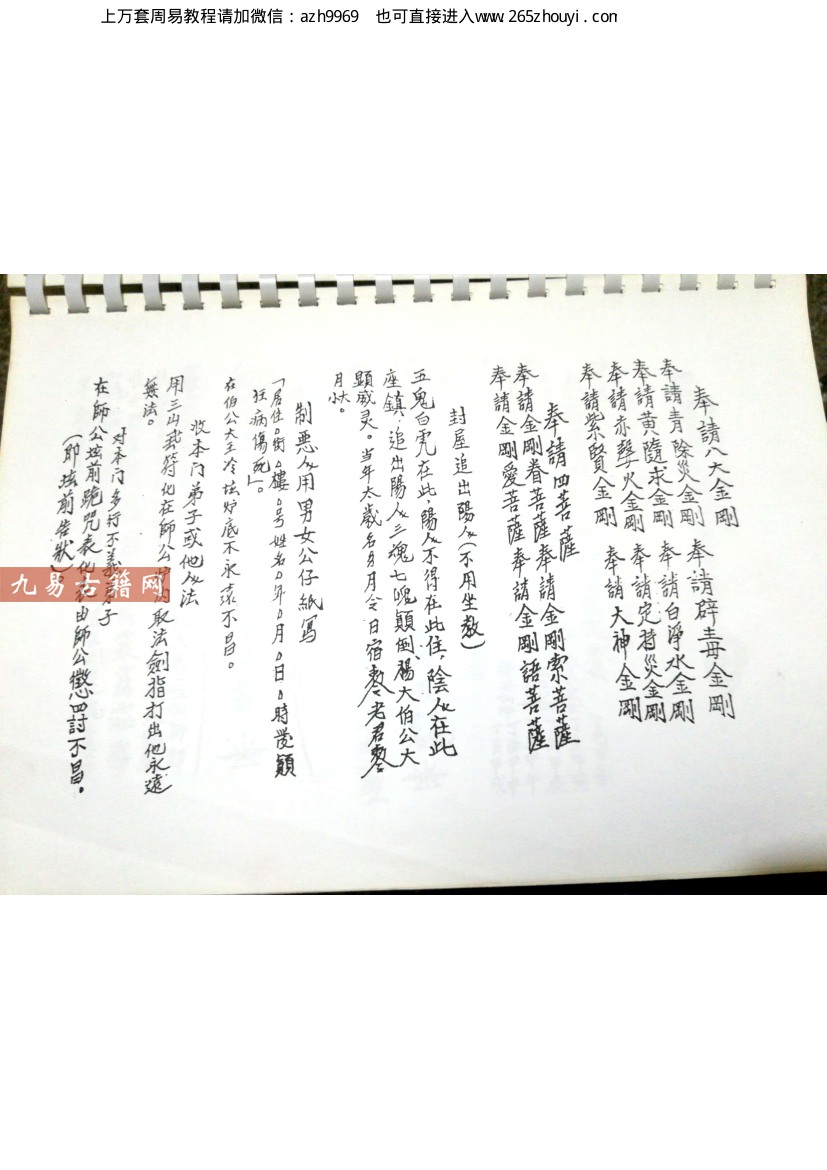 上万套周易教程请加微信：azh9969　也可直接进入www.265zhouyi.com
奉請八大金剛　奉請辟毒金剛
奉請青除災金剛　奉請白淨水金剛
奉請黃隨求金剛　奉請定持災金剛
奉請赤聲火金剛　奉請大神金剛
奉請紫賢金剛
奉請四菩薩
奉請金剛眷菩薩　奉請金剛索菩薩
奉請金剛愛菩薩　奉請金剛語菩薩
封屋追出陽人（不用坐教）
五鬼白虎在此，陽人不得在此住，陰人在此
座鎮，追出陽人三魂七魄顛倒，楊大伯公大
顯威灵。当年太歲名月令日宿　老君
月
制惡人用男女公仔紙寫
「居住o街o樓o号姓名o年o月o日o時發顛
狂病傷死」。
在伯公大王冷坛炉底不永遠不昌。
收本门弟子或他人法
用三山　符化在師公　取法劍指打出他永遠
無法。
对本门多行不義弟子
在師公坛前跪咒表他　由師公懲罰討不昌。
（即坛前告狀）。
九易古籍网